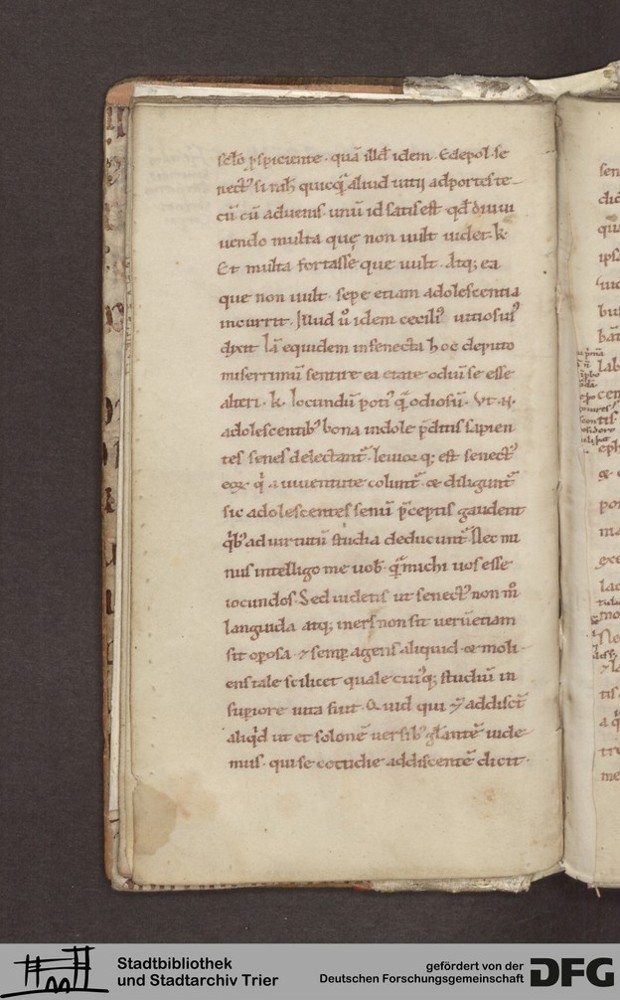 sclo ꝑspiciente. quā illd̄ idem. Edepol. se
nect᷒ si nih̄ quicq̄ aliud uitij adportes te
cū cū aduenis. unū id satis est qd̄ diu ui
uendo multa quę non uult uidet. k.
Et multa fortasse que uult. Atq; ea
que non uult. sepe etiam adolescentia
incurrit. Illud ū idem cecili᷒ uitiosiu᷒
dixit
equidem in senecta hoc deputo
miserrimū sentire ea etate odiū se esse
alteri. k. Iocundū poti᷒ q̄ odiosū. Vt .n.
adolescentib᷒ bona indole p̄ditis sapien
tes senes delectant̄. leuior q; est senect᷒
eoꝝ qⁱ a iuuentute colunt̄. & diligunt̄
sic adolescentes senū p̄ceptis gaudent
qⁱb᷒ ad uirtutū studia deducunt̄. Nec mi
nus intelligo me uob. q̄ michi uos esse
iocundos. Sed uidetis ut senect᷒ non m̊
languida atq; iners non sit uerū etiam
sit oꝑosa. ⁊ semꝑ agens aliquid. & moli
ens tale scilicet quale cui᷒q; studiū in
suꝑiore uita fuit. Quid qui ⁊ addisct̄
aliqⁱd ut et solonē uersib᷒ gl̄antē uide
mus. qui se cotidie addiscentē dicit.
sen
dic
qu
ips
lab
cen
eph
por
ma
exc
lac
mo
tis
me
Stadtbibliothek
und Stadtarchiv Trier
gefördert von der
Deutschen Forschungsgemeinschaft
DFG